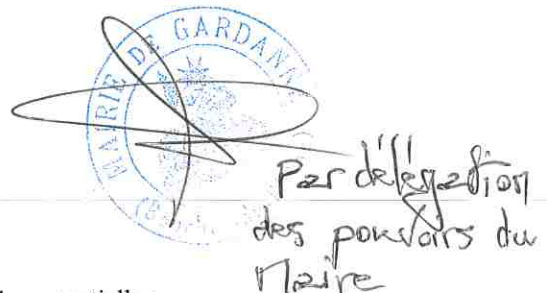 MAIRIE DE GARDANN
Par délégation
des pouvoirs du
Maire